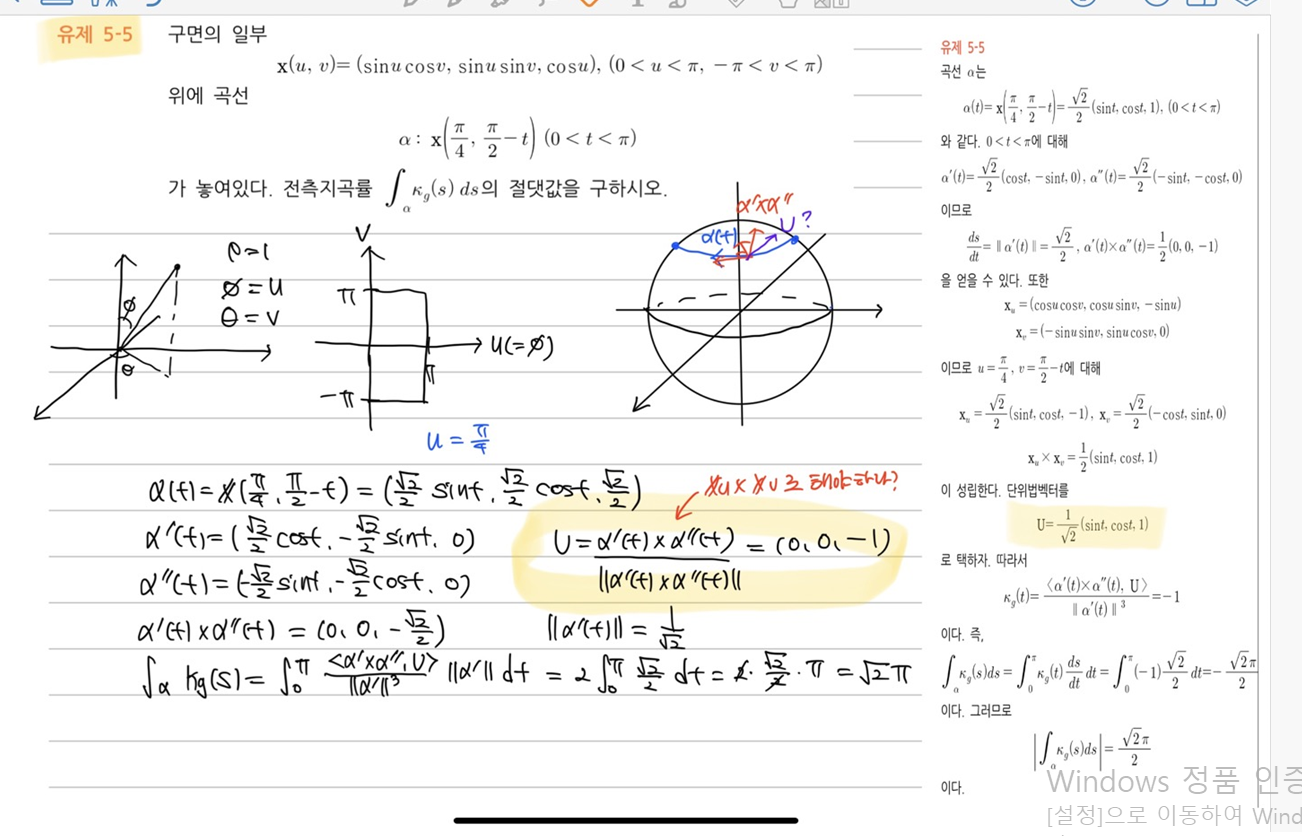 유제 5-5 구면의 일부
x(u, v)= (sinu cosv, sinu sinv, cosu), (0 < u < π, −π < v < π)
위에 곡선
α : x(π/4, π/2 − t) (0 < t < π)
가 놓여있다. 전측지곡률 ∫_α κ_g(s) ds의 절댓값을 구하시오.
ρ=1
ϕ=u
θ=v
ϕ
θ
V
π
−π
π
u(=ϕ)
u = π/4
α'×α''
α(t)
U?
α(t) = x(π/4, π/2−t) = (√2/2 sint, √2/2 cost, √2/2)
xu × xv로 해야하나?
α'(t) = (√2/2 cost, −√2/2 sint, 0)
U = α'(t)×α''(t) / ||α'(t)×α''(t)|| = (0, 0, −1)
α''(t) = (−√2/2 sint, −√2/2 cost, 0)
α'(t)×α''(t) = (0, 0, −√2/2)
||α'(t)|| = 1/√2
∫_α kg(s) = ∫_0^π <α'×α'', U>/||α'||³ ||α'|| dt = 2∫_0^π √2/2 dt = 2·√2/2·π = √2π
유제 5-5
곡선 α는
α(t)= x(π/4, π/2 − t)= √2/2 (sint, cost, 1), (0 < t < π)
와 같다. 0 < t < π에 대해
α'(t)= √2/2 (cost, −sint, 0), α''(t)= √2/2 (−sint, −cost, 0)
이므로
ds/dt = ∥α'(t)∥ = √2/2, α'(t)×α''(t)= 1/2 (0, 0, −1)
을 얻을 수 있다. 또한
x_u = (cosu cosv, cosu sinv, −sinu)
x_v = (−sinu sinv, sinu cosv, 0)
이므로 u = π/4, v = π/2 − t에 대해
x_u = √2/2 (sint, cost, −1), x_v = √2/2 (−cost, sint, 0)
x_u × x_v = 1/2 (sint, cost, 1)
이 성립한다. 단위법벡터를
U= 1/√2 (sint, cost, 1)
로 택하자. 따라서
κ_g(t)= ⟨α'(t)×α''(t), U⟩ / ∥α'(t)∥³ = −1
이다. 즉,
∫_α κ_g(s)ds = ∫_0^π κ_g(t) ds/dt dt = ∫_0^π (−1) √2/2 dt = − √2π/2
이다. 그러므로
|∫_α κ_g(s)ds| = √2π/2
이다.
Windows 정품 인증
[설정]으로 이동하여 Wind